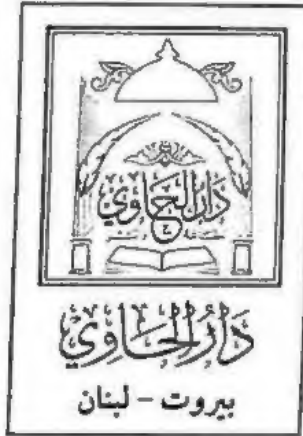 دَارُ الحَاوِي
دَارُ الحَاوِي
بيروت - لبنان